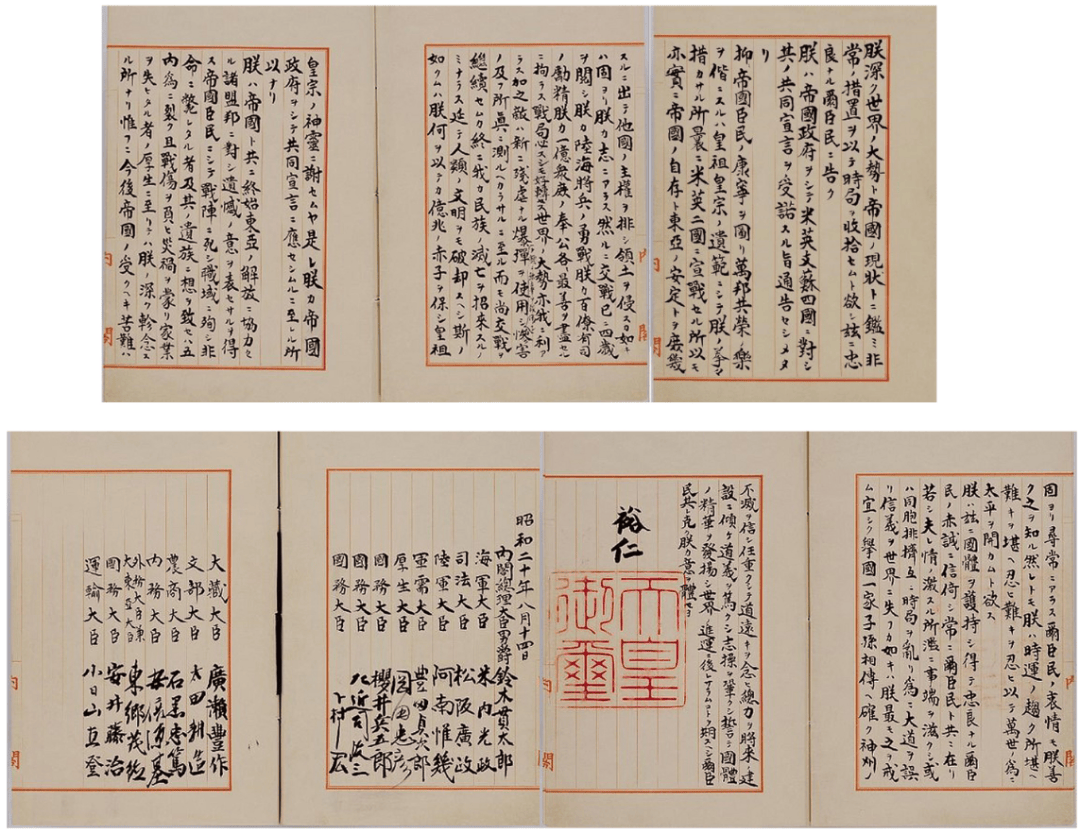 朕深ク世界ノ大勢ト帝國ノ現状トニ鑑ミ非
常ノ措置ヲ以テ時局ヲ收拾セムト欲シ茲ニ忠
良ナル爾臣民ニ告ク
朕ハ帝國政府ヲシテ米英支蘇四國ニ對シ
其ノ共同宣言ヲ受諾スル旨通告セシメタ
リ
抑帝國臣民ノ康寧ヲ圖リ萬邦共榮ノ樂
ヲ偕ニスルハ皇祖皇宗ノ遺範ニシテ朕ノ拳々
措カサル所曩ニ米英二國ニ宣戰セル所以モ
亦實ニ帝國ノ自存ト東亞ノ安定トヲ庶幾
スルニ出テ他國ノ主權ヲ排シ領土ヲ侵スカ如キ
ハ固ヨリ朕カ志ニアラス然ルニ交戰已ニ四歳
ヲ閲シ朕カ陸海將兵ノ勇戰朕カ百僚有司
ノ勵精朕カ一億衆庶ノ奉公各最善ヲ盡セル
ニ拘ラス戰局必スシモ好轉セス世界ノ大勢亦我ニ利ア
ラス加之敵ハ新ニ殘虐ナル爆彈ヲ使用シ慘害
ノ及フ所眞ニ測ルヘカラサルニ至ル而モ尚交戰ヲ
繼續セムカ終ニ我カ民族ノ滅亡ヲ招來スルノ
ミナラス延テ人類ノ文明ヲモ破却スヘシ斯ノ
如クムハ朕何ヲ以テカ億兆ノ赤子ヲ保シ皇祖
皇宗ノ神靈ニ謝セムヤ是レ朕カ帝國
政府ヲシテ共同宣言ニ應セシムルニ至レル所
以ナリ
朕ハ帝國ト共ニ終始東亞ノ解放ニ協力セ
ル諸盟邦ニ對シ遺憾ノ意ヲ表セサルヲ得
ス帝國臣民ニシテ戰陣ニ死シ職域ニ殉シ非
命ニ斃レタル者及其ノ遺族ニ想ヲ致セハ五
内爲ニ裂ク且戰傷ヲ負ヒ災禍ヲ蒙リ家業
ヲ失ヒタル者ノ厚生ニ至リテハ朕ノ深ク軫念ス
ル所ナリ惟フニ今後帝國ノ受クヘキ苦難ハ
固ヨリ尋常ニアラス爾臣民ノ衷情モ朕善
ク之ヲ知ル然レトモ朕ハ時運ノ趨ク所堪ヘ
難キヲ堪ヘ忍ヒ難キヲ忍ヒ以テ萬世ノ爲ニ
太平ヲ開カムト欲ス
朕ハ茲ニ國體ヲ護持シ得テ忠良ナル爾臣
民ノ赤誠ニ信倚シ常ニ爾臣民ト共ニ在リ
若シ夫レ情ノ激スル所濫ニ事端ヲ滋クシ或
ハ同胞排擠互ニ時局ヲ亂リ爲ニ大道ヲ誤
リ信義ヲ世界ニ失フカ如キハ朕最モ之ヲ戒
ム宜シク擧國一家子孫相傳ヘ確ク神州ノ
不滅ヲ信シ任重クシテ道遠キヲ念ヒ總力ヲ將來ノ建
設ニ傾ケ道義ヲ篤クシ志操ヲ鞏クシ誓テ國體
ノ精華ヲ發揚シ世界ノ進運ニ後レサラムコトヲ期スヘシ爾臣
民其レ克ク朕カ意ヲ體セヨ
裕仁
天皇
御璽
昭和二十年八月十四日
内閣總理大臣男爵 鈴木貫太郎
海軍大臣 米内光政
司法大臣 松阪廣政
陸軍大臣 阿南惟幾
軍需大臣 豊田貞次郎
厚生大臣 岡田忠彦
國務大臣 櫻井兵五郎
國務大臣 左近司政三
國務大臣 下村宏
大藏大臣 廣瀬豐作
文部大臣 太田耕造
農商大臣 石黒忠篤
内務大臣 安倍源基
外務大臣兼
大東亞大臣 東郷茂徳
國務大臣 安井藤治
運輸大臣 小日山直登
内閣